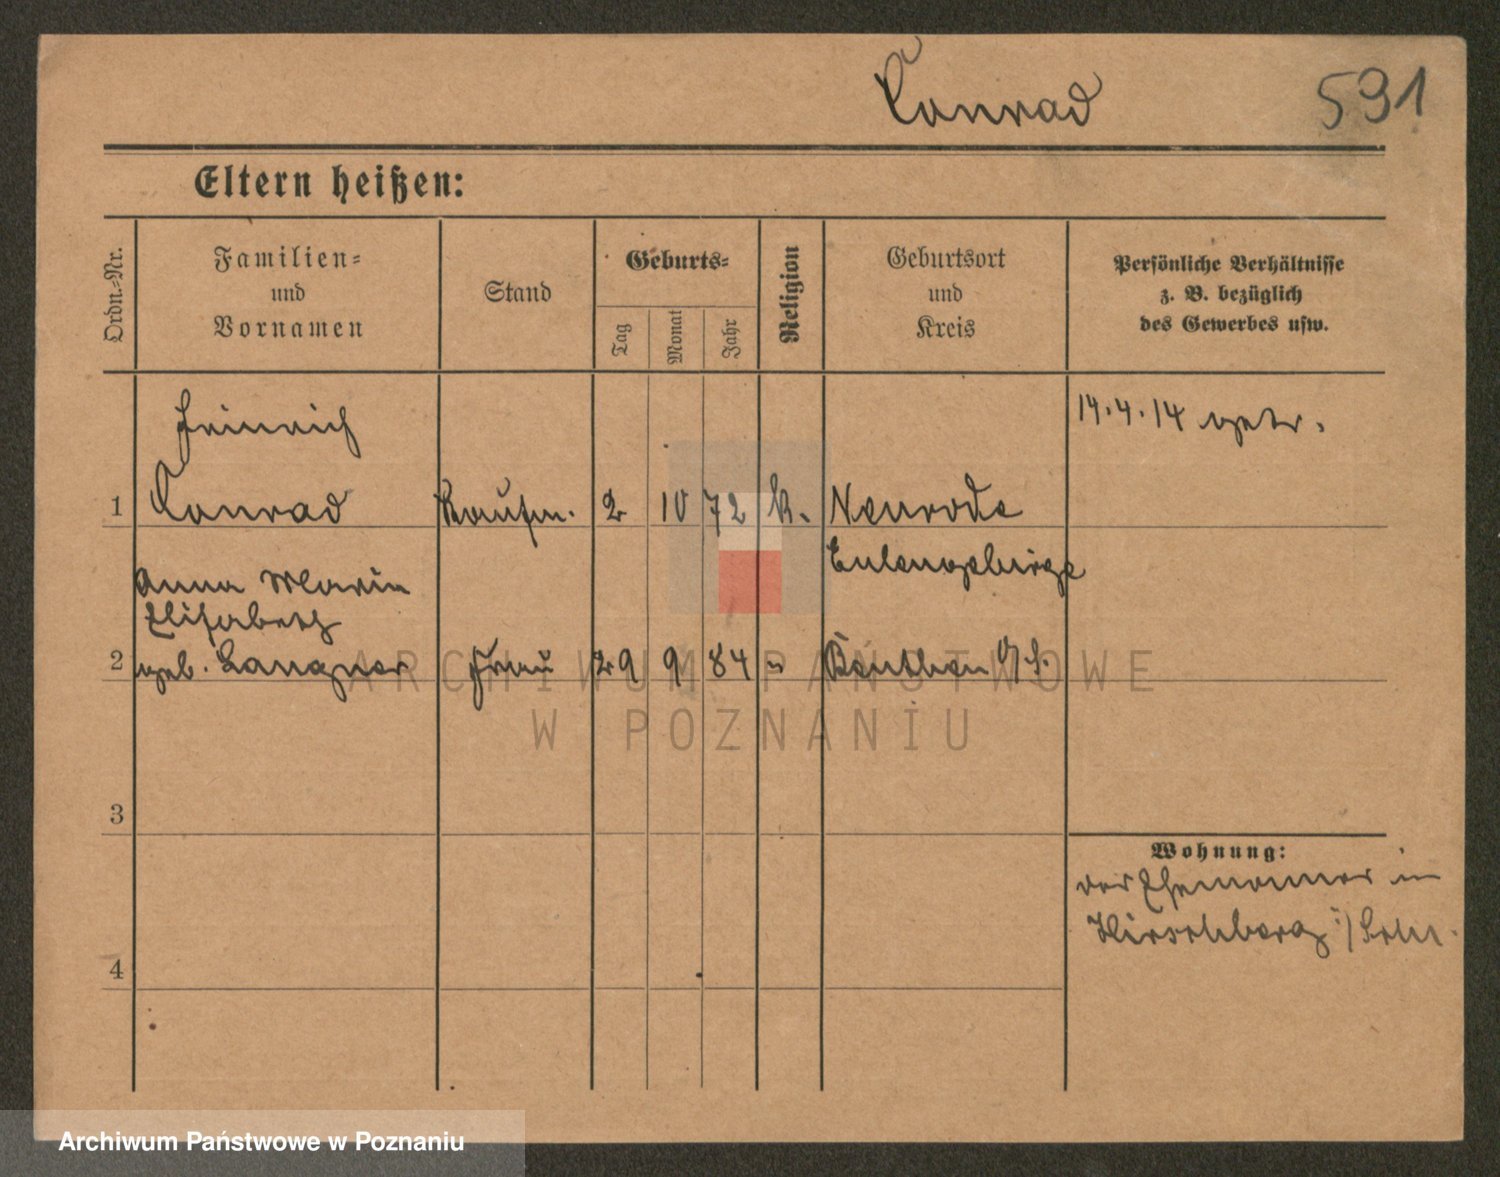 Conrad 591
Eltern heißen:
Ordn.-Nr.
Familien-
und
Vornamen
Stand
Geburts-
Tag
Monat
Jahr
Religion
Geburtsort
und
Kreis
Persönliche Verhältnisse
z. B. bezüglich
des Gewerbes usw.
Heinrich 14.4.14 getr.
1 Conrad Kaufm. 2 10 72 k. Neurode
Eulengebirge
Anna Maria
Elisabeth
2 geb. Langner Frau 29 9 84 " Beuthen O/S.
3
Wohnung:
der Ehemänner in
Hirschberg i/Schl.
4
ARCHIWUM PAŃSTWOWE
W POZNANIU
Archiwum Państwowe w Poznaniu